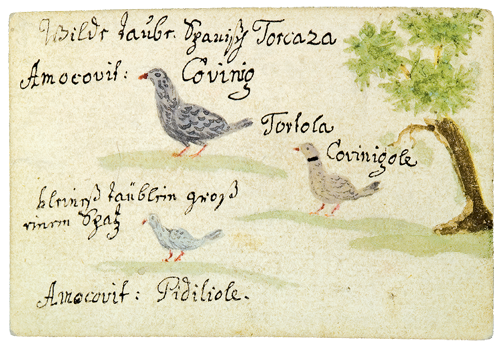 Wilde taube. Spanisch Torcaza
Amocovit: Covinig
Tortola
Covinigole
kleineß täublein groß
einem Spatz
Amocovit: Pidiliole.